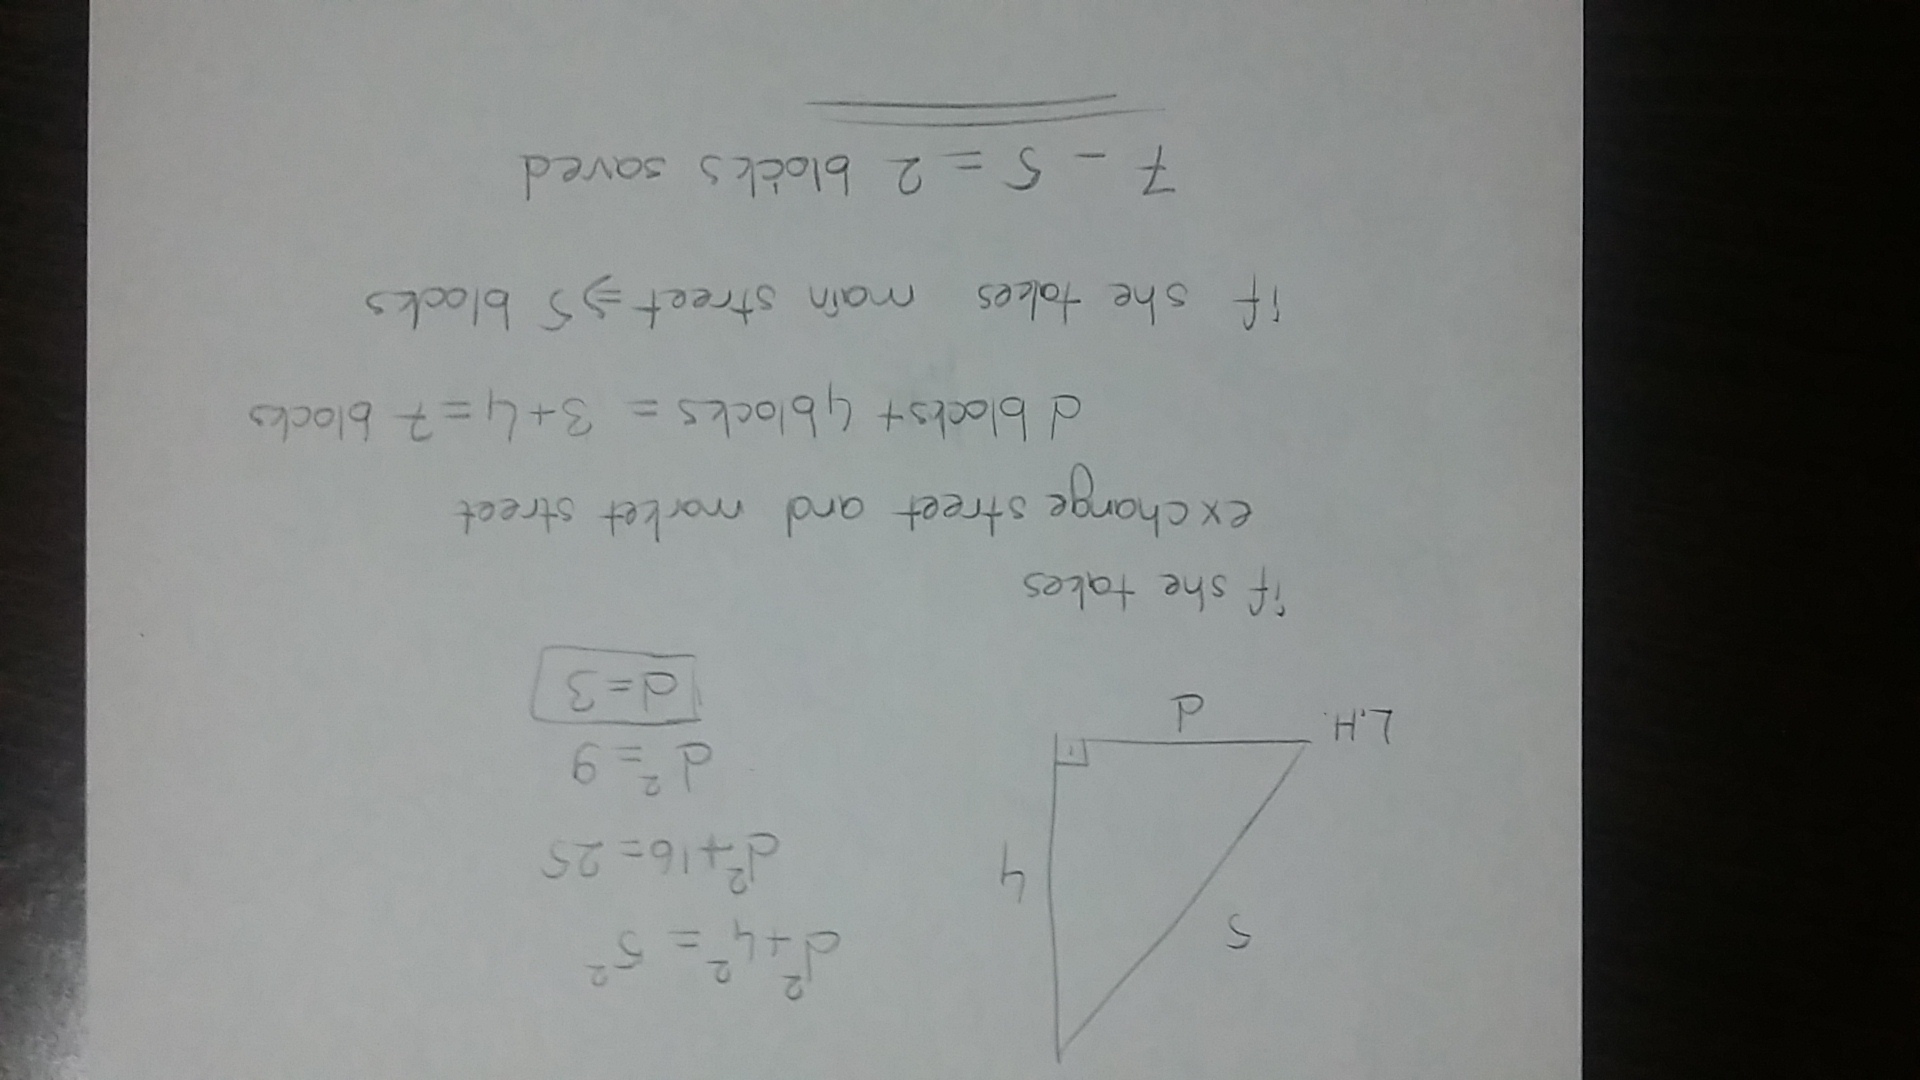 5
d² + 4² = 5²
4
d² + 16 = 25
d² = 9
L.H.
d
d = 3
if she takes
exchange street and market street
d blocks + 4 blocks = 3 + 4 = 7 blocks
if she takes main street ⇒ 5 blocks
7 - 5 = 2 blocks saved